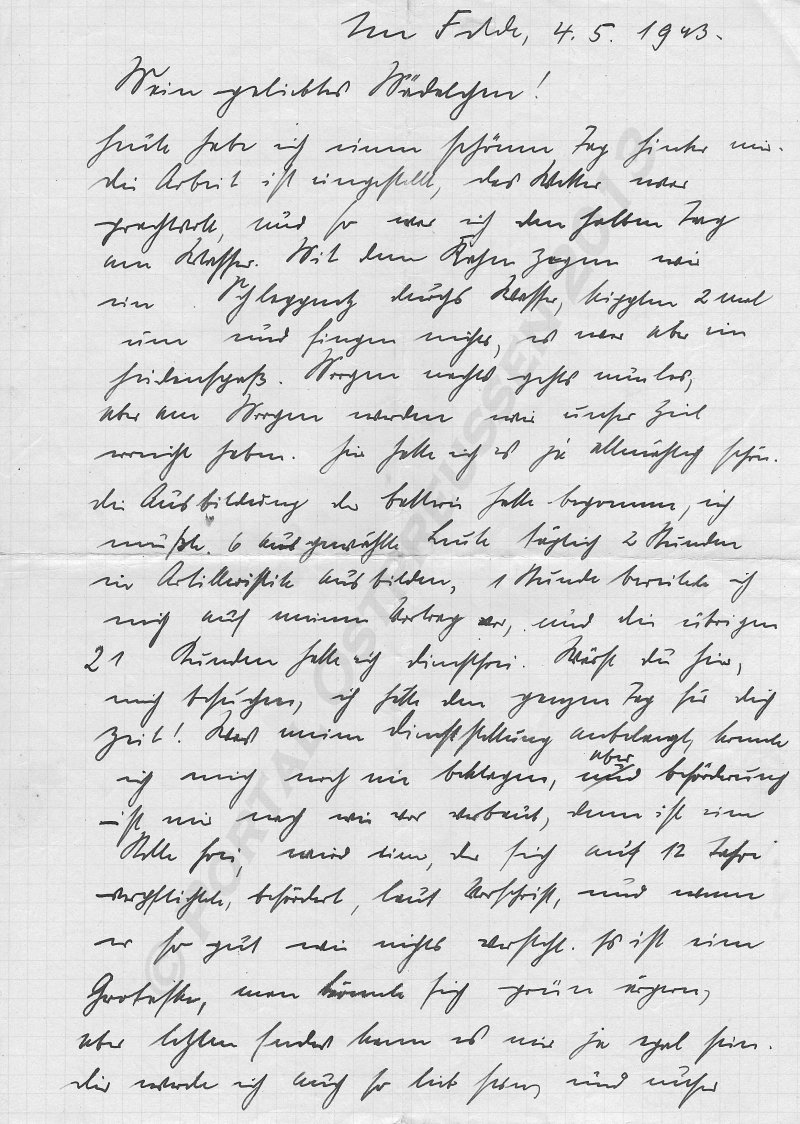 Im Felde, 4.5.1943.
Mein geliebtes Mädelchen!
heute habe ich einen schönen Tag hinter mir.
die Arbeit ist eingestellt, das Wetter war
prachtvoll, und so war ich den halben Tag
am Wasser. Mit dem Kahn zogen wir
ein Schleppnetz durchs Wasser, kippten 2 mal
um und fingen nichts, es war aber ein
heidenspaß. Morgen nachts gehts nun los,
aber am Morgen werden wir unser Ziel
erreicht haben. hier hatte ich es ja allmählich schön.
die Ausbildung der batterie hatte begonnen, ich
mußte 6 ausgewählte Leute täglich 2 Stunden
in Artilleristik ausbilden, 1 Stunde bereitete ich
mich auf meinen Vortrag vor, und die übrigen
21 Stunden hatte ich dienstfrei. Wärst du hier,
mich besuchen, ich hätte den ganzen Tag für dich
Zeit! Was meine dienststellung anbelangt, konnte
ich mich noch nie beklagen, aber beförderung
ist mir nach wie vor verbaut, denn ist eine
Stelle frei, wird einer, der sich auf 12 Jahre
verpflichtete, befördert, laut Vorschrift, und wenn
er so gut wie nichts versteht. Es ist eine
Groteske, man könnte sich grün ärgern,
aber letzten Endes kann es mir ja egal sein.
dir werde ich auch so lieb sein, und unser
© PORTAL OSTPREUSSEN 2013